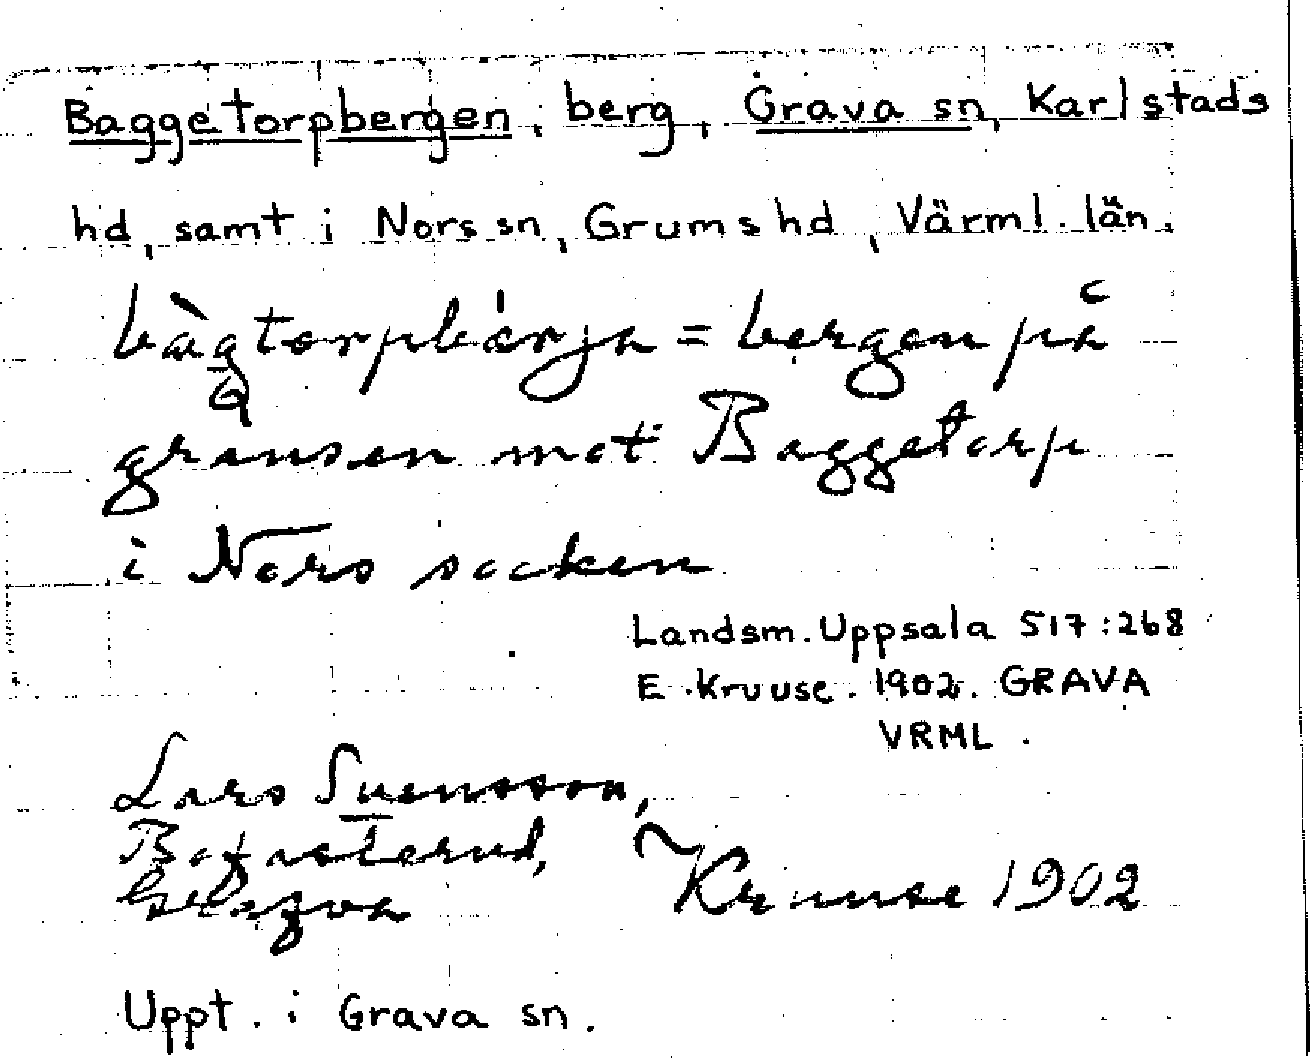 Baggetorpbergen, berg, Grava sn, Karlstads
hd, samt i Nors sn, Grums hd, Värml. län.
= bergen på
gränsen mot Baggetorp
i Nors socken
Landsm. Uppsala 517:268
E. Kruuse. 1902. GRAVA
VRML.
Lars Svensson,
Kruuse 1902
Uppt. i Grava sn.